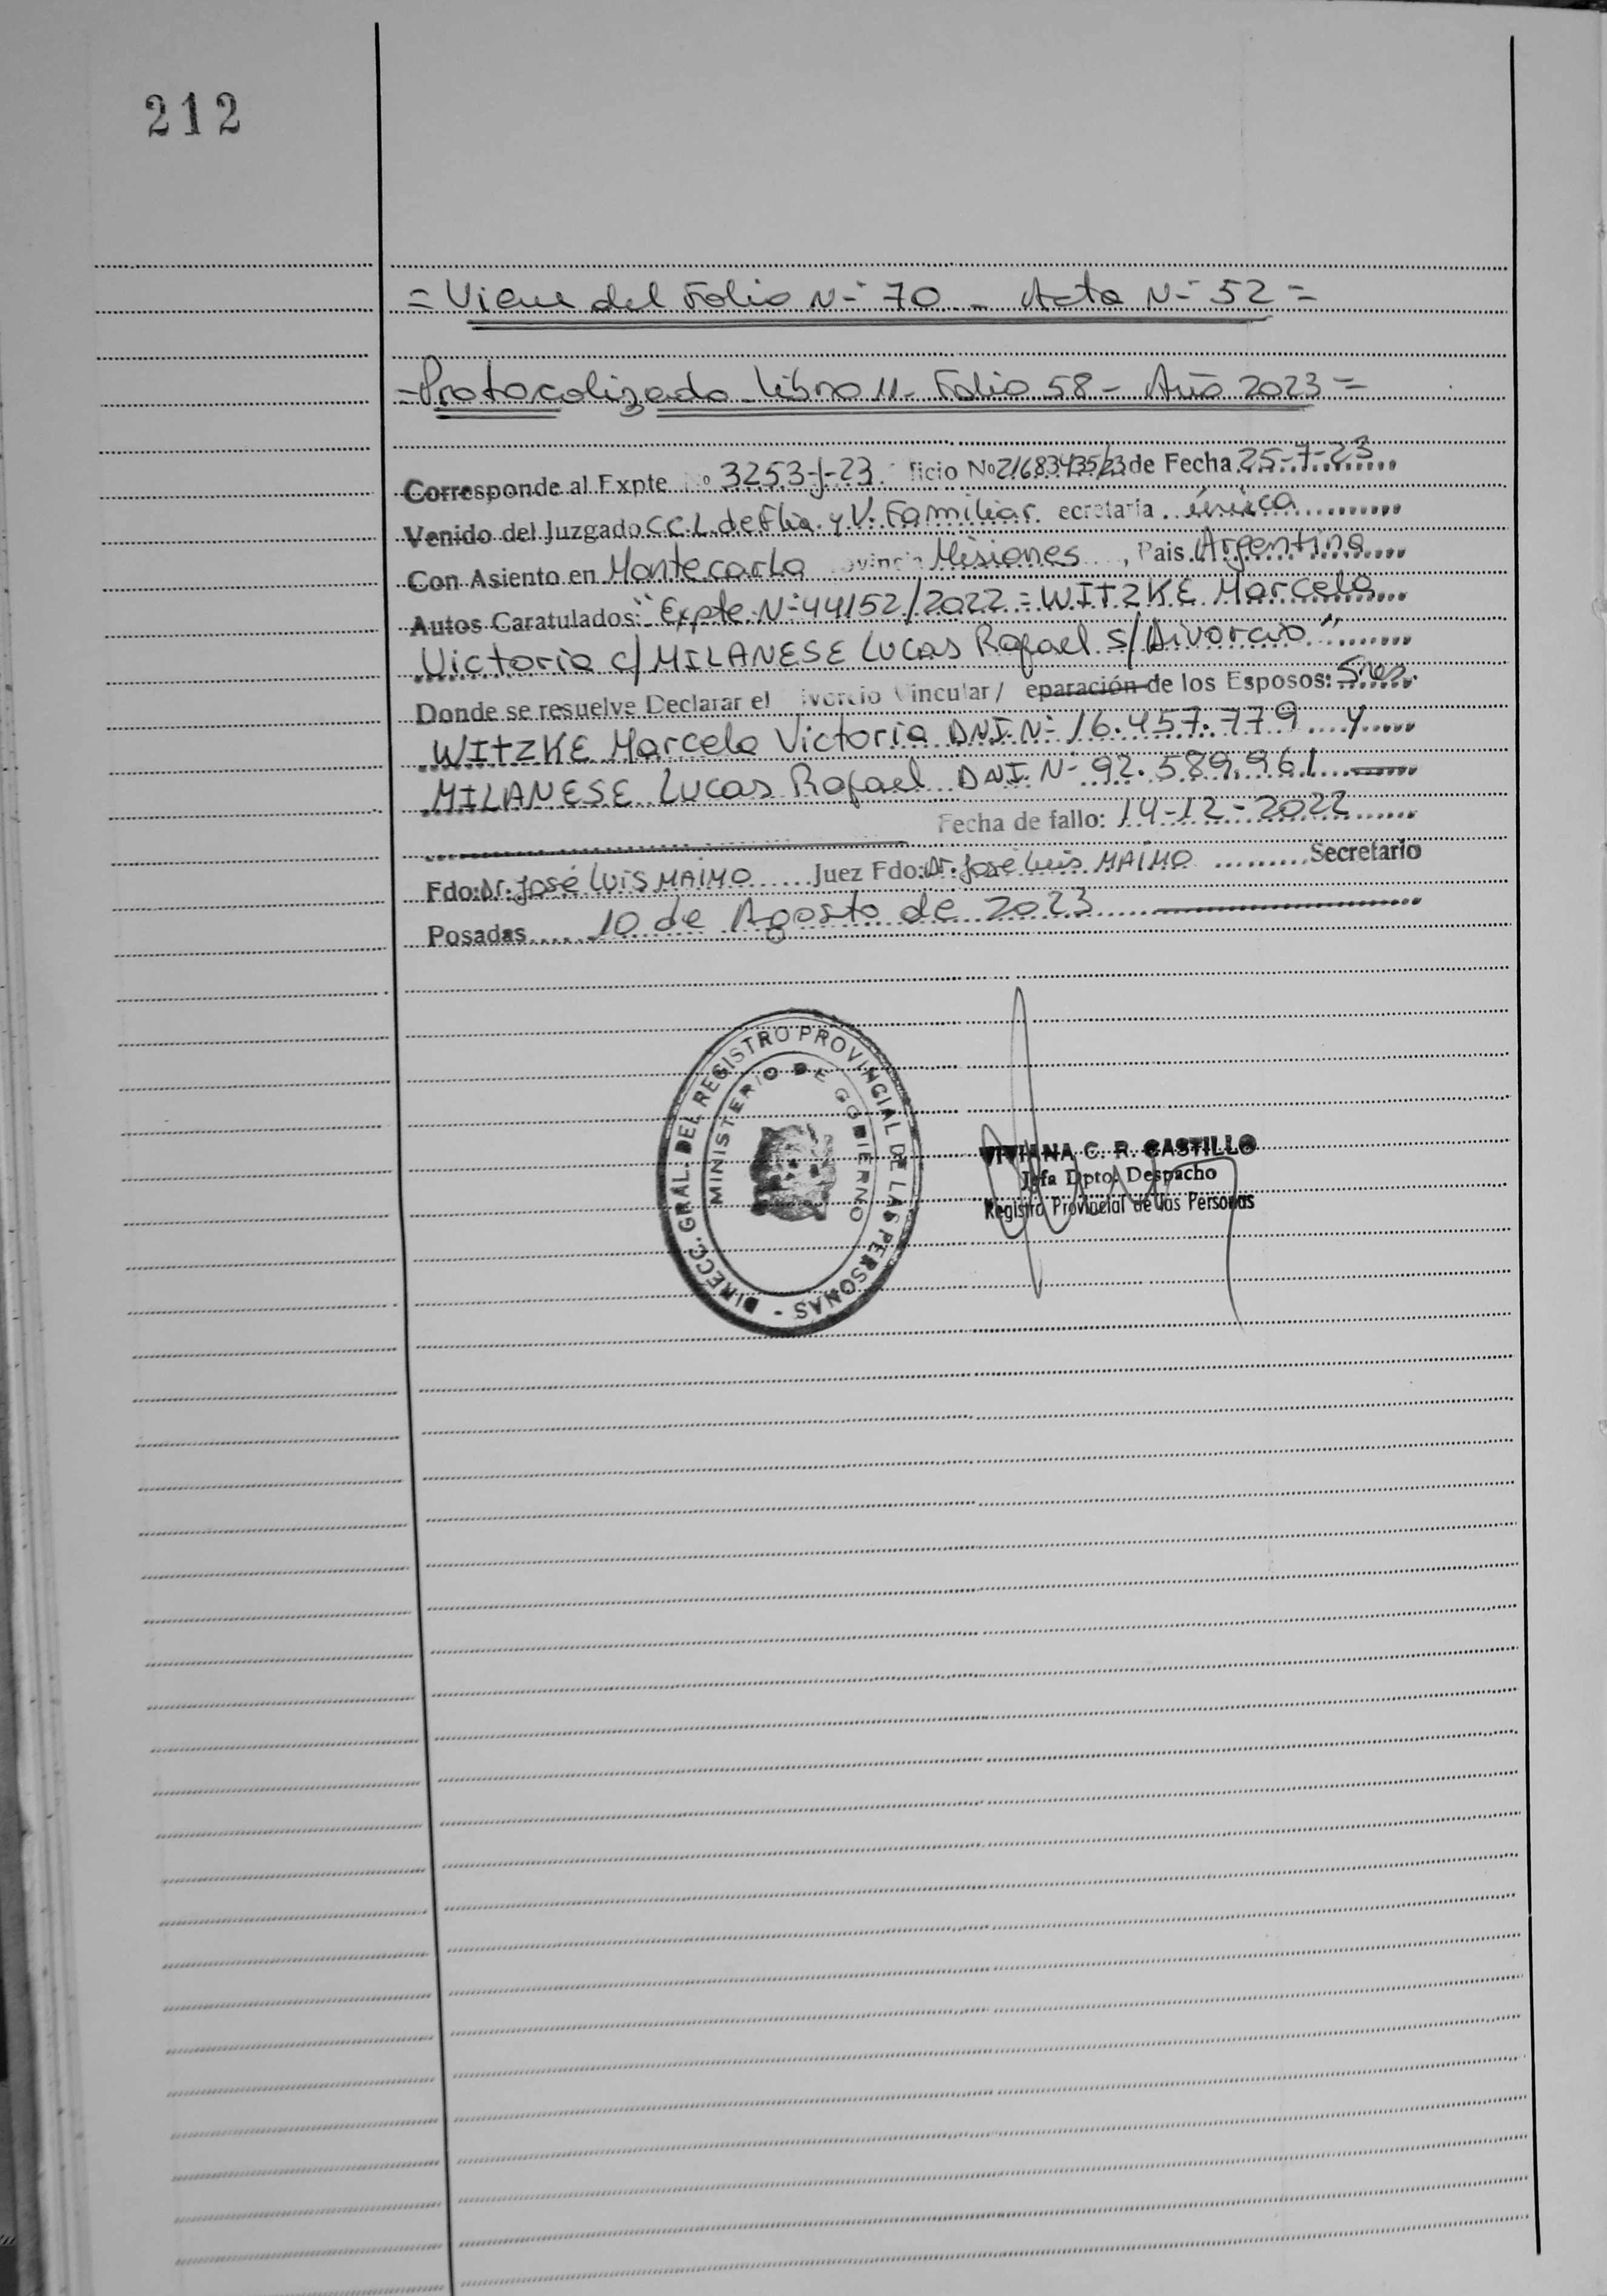 212
= Viene del Folio N-º 70 - Acta N-º 52 =
- Protocolizado - Libro 11 - Folio 58 - Año 2023 =
Corresponde al Expte Nº 3253-J-23. ficio Nº 21683435/23 de Fecha 25-7-23
Venido del Juzgado C.C.L. de Flia. y V. Familiar ecretaría única
Con Asiento en Montecarlo ovincia Misiones, Pais Argentina
Autos Caratulados: "Expte. N-º 44152/2022 = WITZKE Marcela
Victoria c/ MILANESE Lucas Rafael s/ Divorcio"
Donde se resuelve Declarar el ivorcio Vincular / eparación de los Esposos: Sres.
WITZKE Marcela Victoria DNI. N-º 16.457.779 y
MILANESE Lucas Rafael DNI. N-º 92.589.961
Fecha de fallo: 14-12-2022
Fdo: Dr. José Luis MAIMO Juez Fdo: Dr. José Luis MAIMO Secretario
Posadas 10 de Agosto de 2023
DIRECC. GRAL. DEL REGISTRO PROVINCIAL DE LAS PERSONAS -
MINISTERIO DE GOBIERNO
VIVIANA C. R. CASTILLO
Jefa Dpto. Despacho
Registro Provincial de las Personas